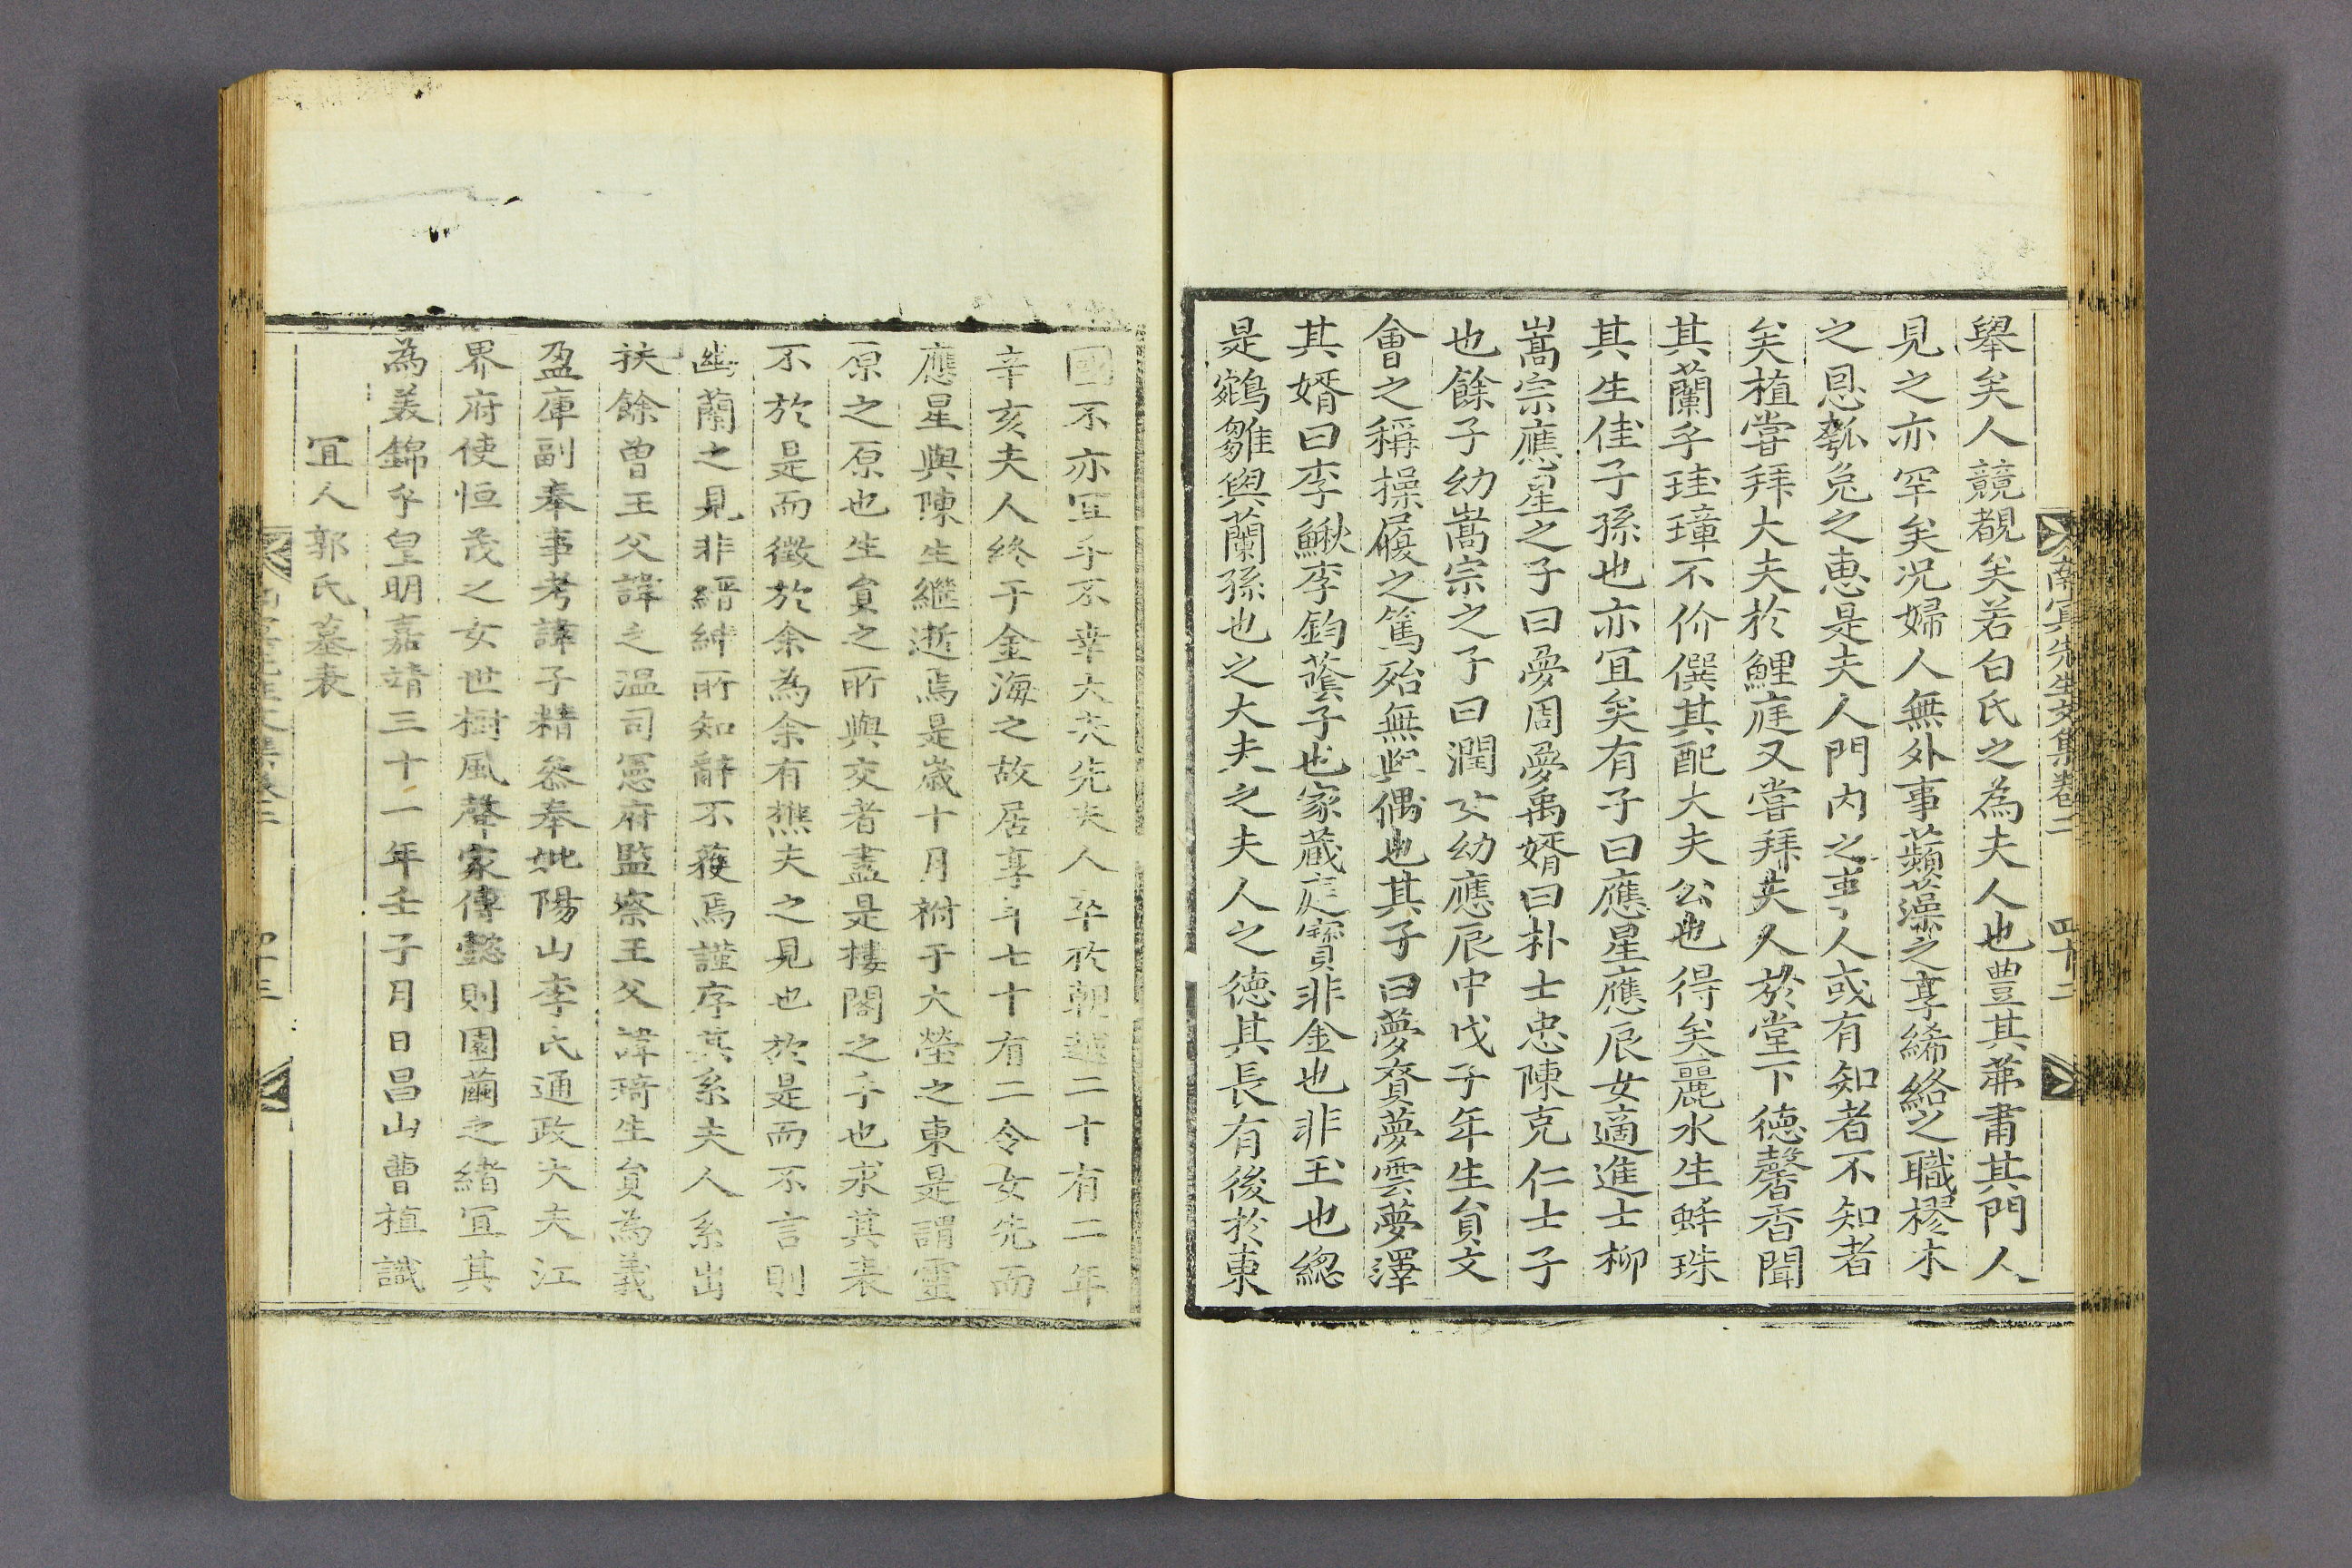 南冥先生文集卷二
四十二
舉矣人競覩矣若白氏之為夫人也豊其茀肅其門人
見之亦罕矣况婦人無外事蘋藻之享絺綌之職樛木
之恩瓠兔之惠是夫人門內之事人或有知者不知者
矣植嘗拜大夫於鯉庭又嘗拜夫人於堂下德馨香聞
其蘭乎珪璋不价僎其配大夫公也得矣麗水生蚌珠
其生佳子孫也亦宜矣有子曰應星應辰女適進士柳
嵩宗應星之子曰夢周夢禹婿曰朴士忠陳克仁士子
也餘子幼嵩宗之子曰潤女幼應辰中戊子年生貟文
會之稱操履之篤殆無與偶也其子曰夢賚夢雲夢澤
其婿曰李鰍李鈞蓀子也家蔵㝎寶非金也非玉也緫
是鵷雛與蘭孫也之大夫之夫人之德其長有後於東
國不亦宜乎不幸大夫先夫人卒於朝越二十有二年
辛亥夫人終于金海之故居享年七十有二令女先而
應星與陳生繼逝焉是歲十月祔于大塋之東是謂靈
原之原也生貟之所與交者盡是樓閣之手也求其表
不於是而徵於余為余有樵夫之見也於是而不言則
幽蘭之見非縉紳所知辭不獲焉謹序其系夫人系出
扶餘曾王父諱之温司憲府監察王父諱琦生貟為義
盈庫副奉事考諱子精叅奉妣陽山李氏通政大夫江
界府使恒茂之女世樹風聲家傳懿則園繭之緖宜其
為美錦乎皇明嘉靖三十一年壬子月日昌山曹植識
宜人郭氏墓表
四十三